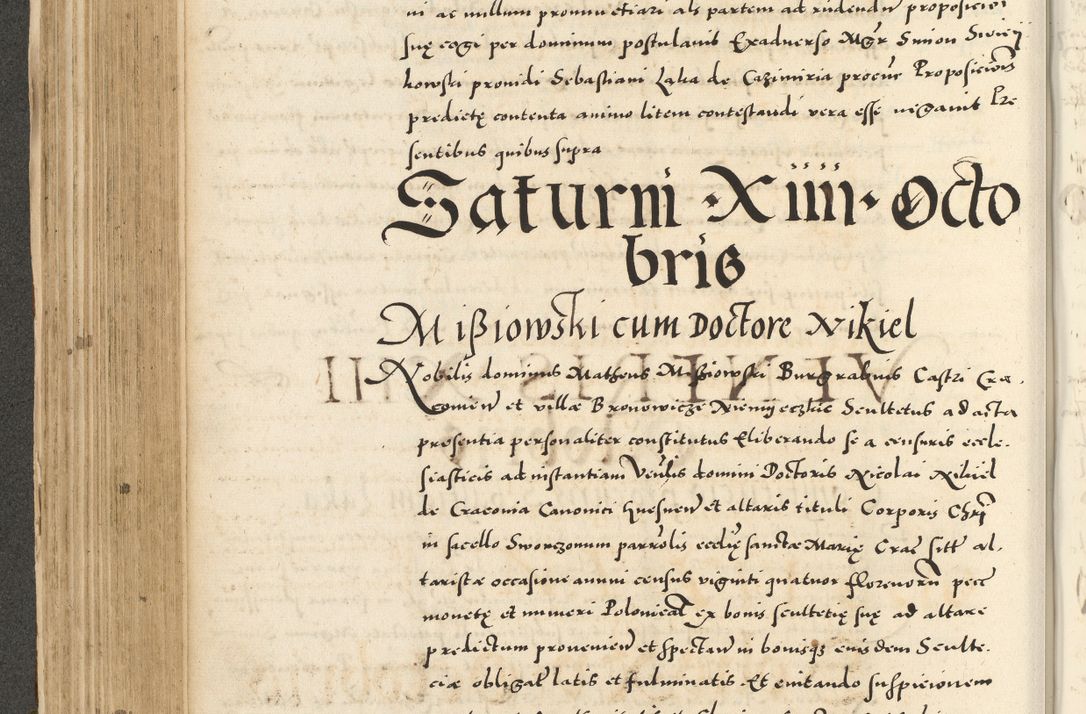 ni ac nullum pronunctiari als partem ad rndendũ proposicioi
suę cogi per dominum postulavit Exadverso Mgr Simon Swięy
kowski providi Sebastiani Laka de Cazimiria procur̃ Proposicionis
predictę contenta animo litem contestandi vera esse negavit Pre
sentibus quibus supra
Saturni · Xiiii · Octo
bris
Mißiowski cum Doctore Nikiel
Nobilis dominus Matheus Mißiowski Burgrabius Castri Cra-
covieñ et villæ Bronowicze Niemyeczkie Scultetus ad acta
presentia personaliter constitutus Eliberando se a censuris eccle-
siasticis ad instantiam Venlis domini Doctoris Nicolai Nikiel
de Cracovia Canonici Gnesneñ et altaris tituli Corporis Chri
in sacello Sworzonum parrolis ecclię sanctæ Marię Crac sitt al-
taristæ occasione annui census viginti quatuor florenorũ pecc
monetę et numeri Polonicał ex bonis scultetię suę ad altare
predictum provenieñ et spectañ in bonisqȝ eiusdem Sculte-
ciæ obligał latis et fulminatis Et evitando suspicionem